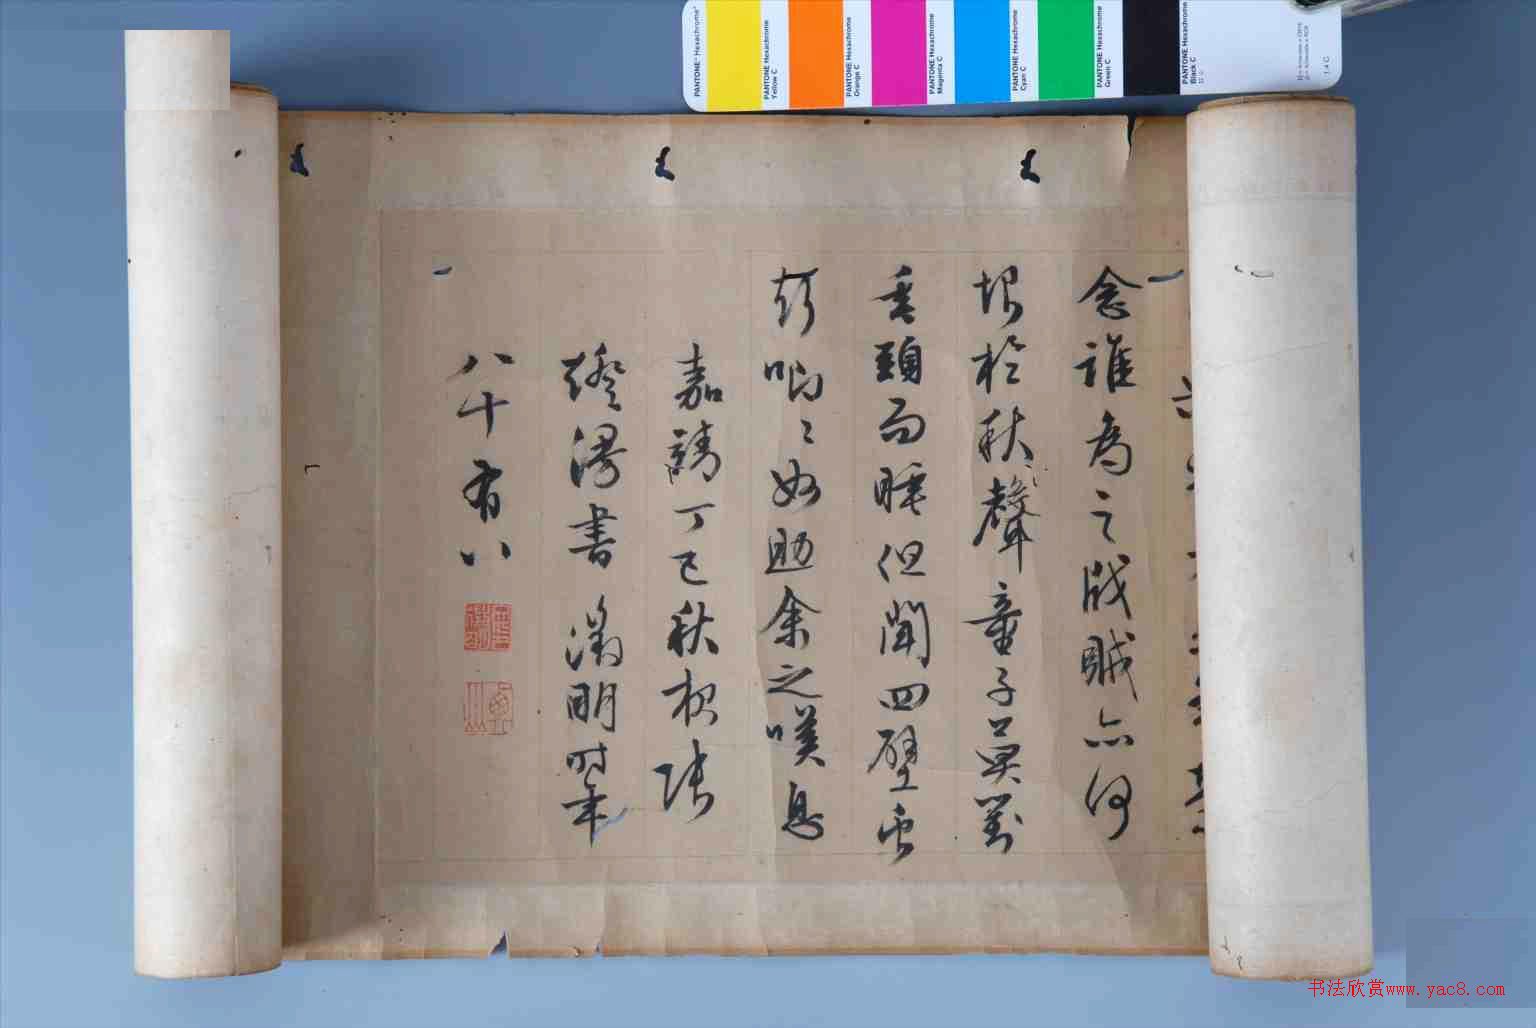 PANTONE® Hexachrome®
PANTONE Hexachrome
Yellow C
PANTONE Hexachrome
Orange C
PANTONE Hexachrome
Magenta C
PANTONE Hexachrome
Cyan C
PANTONE Hexachrome
Green C
PANTONE Hexachrome
Black C
1.4 C
念誰為之戕賊亦何
恨於秋聲童子莫對
垂頭而睡但聞四壁虫
声唧〻如助余之嘆息
嘉靖丁巳秋張
燈漫書 徵明時年
八十有八
书法欣赏www.yac8.com